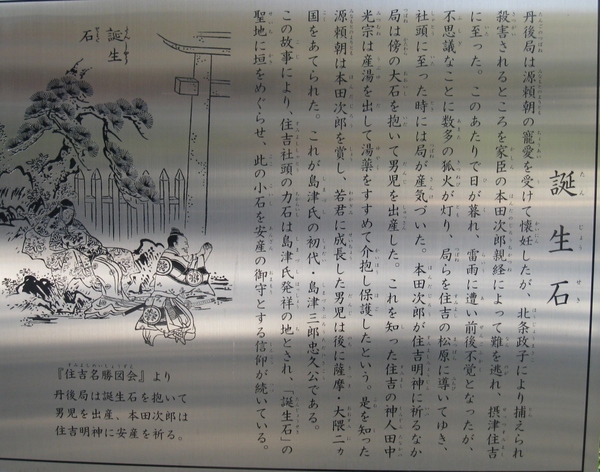 誕生石
たんじょうせき
丹後局は源頼朝の寵愛を受けて懐妊したが、北条政子により捕えられ
殺害されるところを家臣の本田次郎親経によって難を逃れ、摂津住吉
に至った。このあたりで日が暮れ、雷雨に遭い前後不覚となったが、
不思議なことに数多の狐火が灯り、局らを住吉の松原に導いてゆき、
社頭に至った時には局が産気づいた。本田次郎が住吉明神に祈るなか
局は傍の大石を抱いて男児を出産した。これを知った住吉の神人田中
光宗は産湯を出して湯薬をすすめて介抱し保護したという。是を知った
源頼朝は本田次郎を賞し、若君に成長した男児は後に薩摩・大隅二ヵ
国をあてられた。これが島津氏の初代・島津三郎忠久公である。
この故事により、住吉社頭の力石は島津氏発祥の地とされ、「誕生石」の
聖地に垣をめぐらせ、此の小石を安産の御守とする信仰が続いている。
誕生石
『住吉名勝図会』より
丹後局は誕生石を抱いて
男児を出産、本田次郎は
住吉明神に安産を祈る。